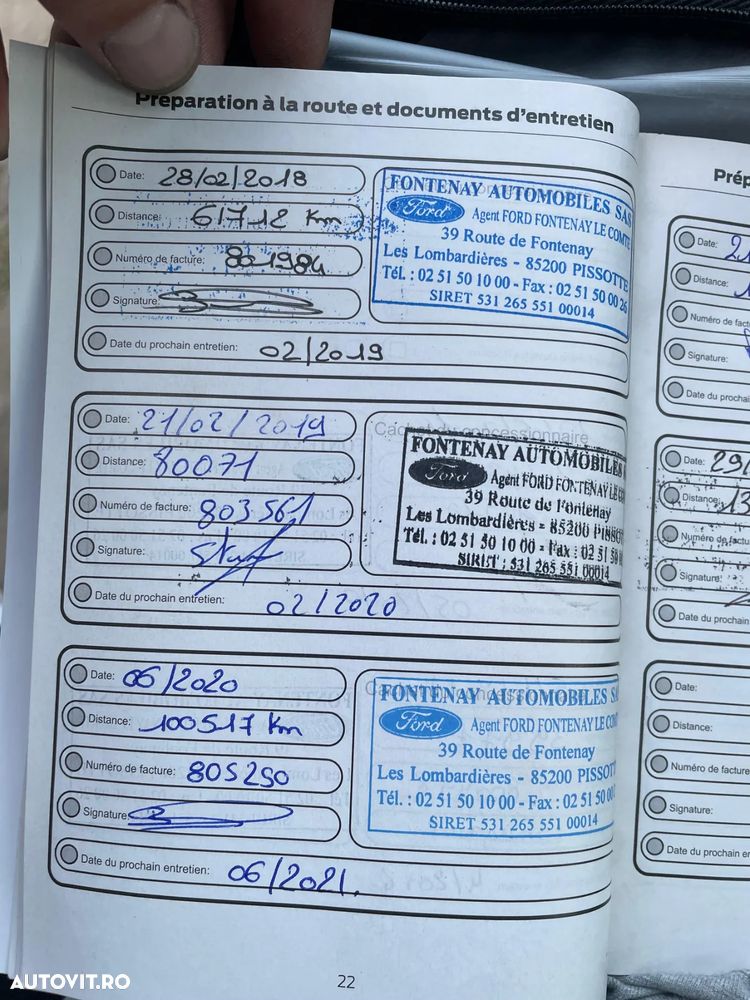 Préparation à la route et documents d'entretien
Date: 28/02/2018
Distance: 61712 Km
Numéro de facture: 801984
Signature:
Date du prochain entretien: 02/2019
FONTENAY AUTOMOBILES SAS
Ford Agent FORD FONTENAY LE COMTE
39 Route de Fontenay
Les Lombardières - 85200 PISSOTTE
Tél. : 02 51 50 10 00 - Fax : 02 51 50 00 26
SIRET 531 265 551 00014
Date: 21/02/2019
Distance: 80071
Numéro de facture: 803561
Signature:
Date du prochain entretien: 02/2020
Cachet du concessionnaire
FONTENAY AUTOMOBILES
Ford Agent FORD FONTENAY LE
39 Route de Fontenay
Les Lombardières - 85200 PISSOT
Tél. : 02 51 50 10 00 - Fax : 02 51 50
SIRET : 531 265 551 00014
Date: 06/2020
Distance: 100517 Km
Numéro de facture: 805250
Signature:
Date du prochain entretien: 06/2021.
Cachet du concessionnaire
FONTENAY AUTOMOBILES SA
Ford Agent FORD FONTENAY LE COM
39 Route de Fontenay
Les Lombardières - 85200 PISSOT
Tél. : 02 51 50 10 00 - Fax : 02 51 50 00
SIRET 531 265 551 00014
22
Prép
Date: 21
Distance: 1
Numéro de fact
Signature:
Date du prochai
Date: 29/
Distance: 13
Numéro de factu
Signature:
Date du prochain
Date:
Distance:
Numéro de facture
Signature:
Date du prochain e
AUTOVIT.RO